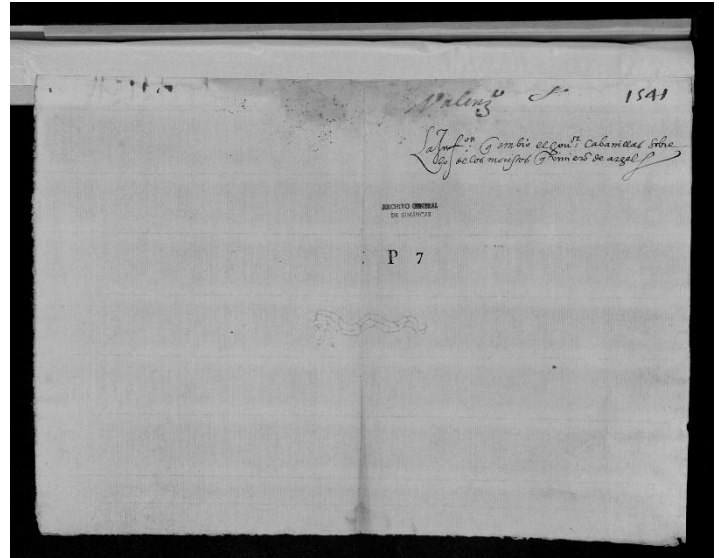 Valenᵃ 1541
La Infᵒⁿ q̃ embio el gouʳ Cabanillas sobre
lo de los moriscos q̃ vinierõ de argel
ARCHIVO GENERAL
DE SIMANCAS
P 7